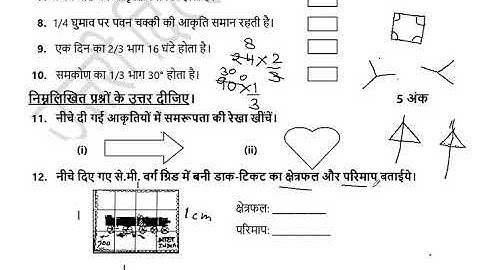 8. 1/4 घुमाव पर पवन चक्की की आकृति समान रहती है।
8
9. एक दिन का 2/3 भाग 16 घंटे होता है। 24 × 2/3
10. समकोण का 1/3 भाग 30° होता है। 90 × 1/3
30
निम्नलिखित प्रश्नों के उत्तर दीजिए। 5 अंक
11. नीचे दी गई आकृतियों में समरूपता की रेखा खींचें।
(i) (ii)
12. नीचे दिए गए से.मी. वर्ग ग्रिड में बनी डाक-टिकट का क्षेत्रफल और परिमाप बताईये।
1 1cm क्षेत्रफल:
परिमाप:
भारत
INDIA